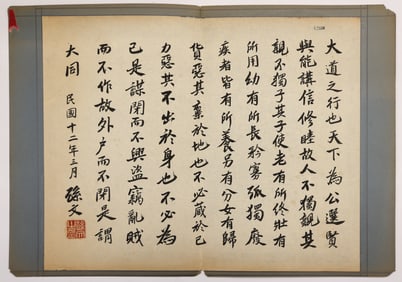 大道之行也天下為公選賢
與能講信修睦故人不獨親其
親不獨子其子使老有所終壯有
所用幼有所長矜寡孤獨廢
疾者皆有所養男有分女有歸
貨惡其棄於地也不必藏於己
力惡其不出於身也不必為
己是謀閉而不興盜竊亂賊
而不作故外戶而不閉是謂
大同 民國十二年三月 孫文